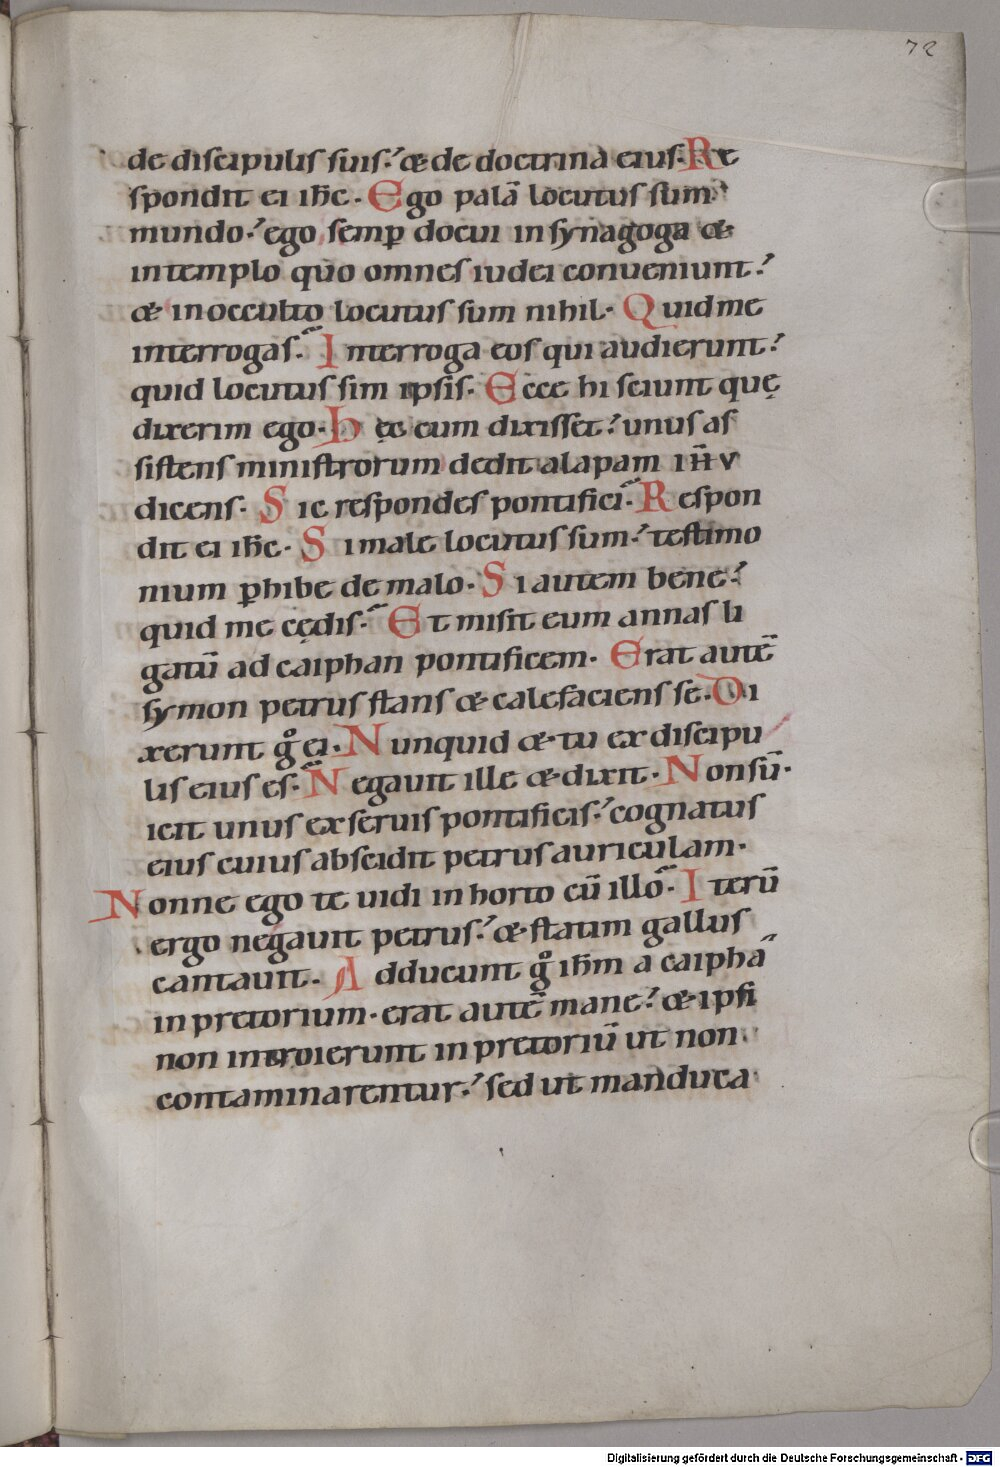 72
de discipulis suis; & de doctrina eius. Re
spondit ei ihc̄. Ego palā locutus sum
mundo; ego semp̄ docui in synagoga &
in templo quo omnes iudei conueniunt;
& in occulto locutus sum nihil. Quid me
interrogas? Interroga eos qui audierunt;
quid locutus sim ipsis. Ecce hi sciunt quę
dixerim ego. Hęc cum dixisset; unus as
sistens ministrorum dedit alapam
dicens. Sic respondes pontifici? Respon
dit ei ihc̄. Si male locutus sum; testimo
nium ꝑhibe de malo. Si autem bene;
quid me cędis? Et misit eum annas li
gatū ad caiphan pontificem. Erat autē
symon petrus stans & calefaciens se. Di
xerunt gͦ ei. Nunquid & tu ex discipu
lis eius es? Negauit ille & dixit. Non sū.
icit unus ex seruis pontificis; cognatus
eius cuius abscidit petrus auriculam.
Nonne ego te uidi in horto cū illo? Iterū
ergo negauit petrus; & statim gallus
cantauit. Adducunt gͦ ihm̄ a caiphā
in pretorium. erat autē mane; & ipsi
non introierunt in pretoriū ut non
contaminarentur; sed ut manduca
Digitalisierung gefördert durch die Deutsche Forschungsgemeinschaft - DFG